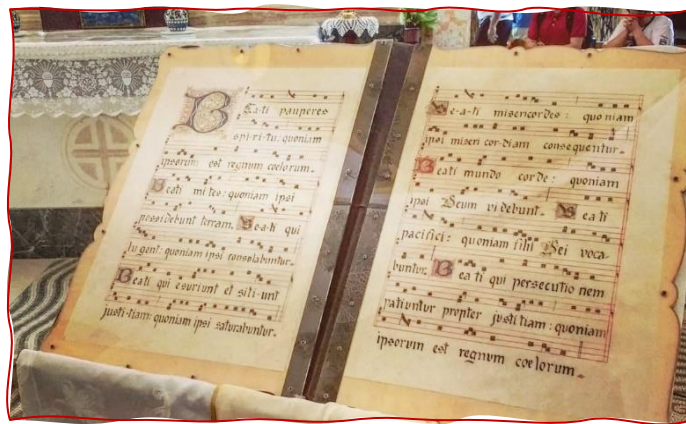 Bea-ti pauperes
spi-ri-tu: quoniam
ipsorum est regnum coelorum.
Beati mi tes: quoniam ipsi
possidebunt terram. Bea-ti qui
lu gent: quoniam ipsi consolabuntur.
Beati qui esuriunt et siti-unt
justi-tiam: quoniam ipsi saturabuntur.
Be-a-ti misericordes: quoniam
ipsi miseri cor-diam consequentur.
Beati mundo corde: quoniam
ipsi Deum videbunt. Bea ti
pacifici: quoniam filii Dei voca-
buntur. Bea ti qui persecutio nem
patiuntur propter justi tiam: quoniam
ipsorum est regnum coelorum.